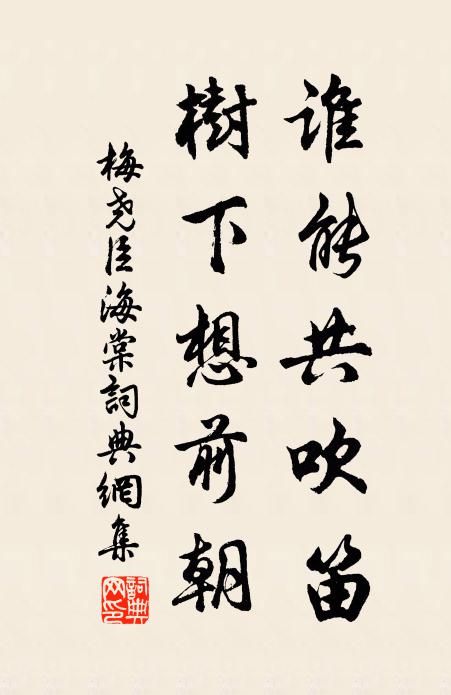 谁能共吹笛
樹下想前朝
梅尧臣海棠詞典網集
詞典网印